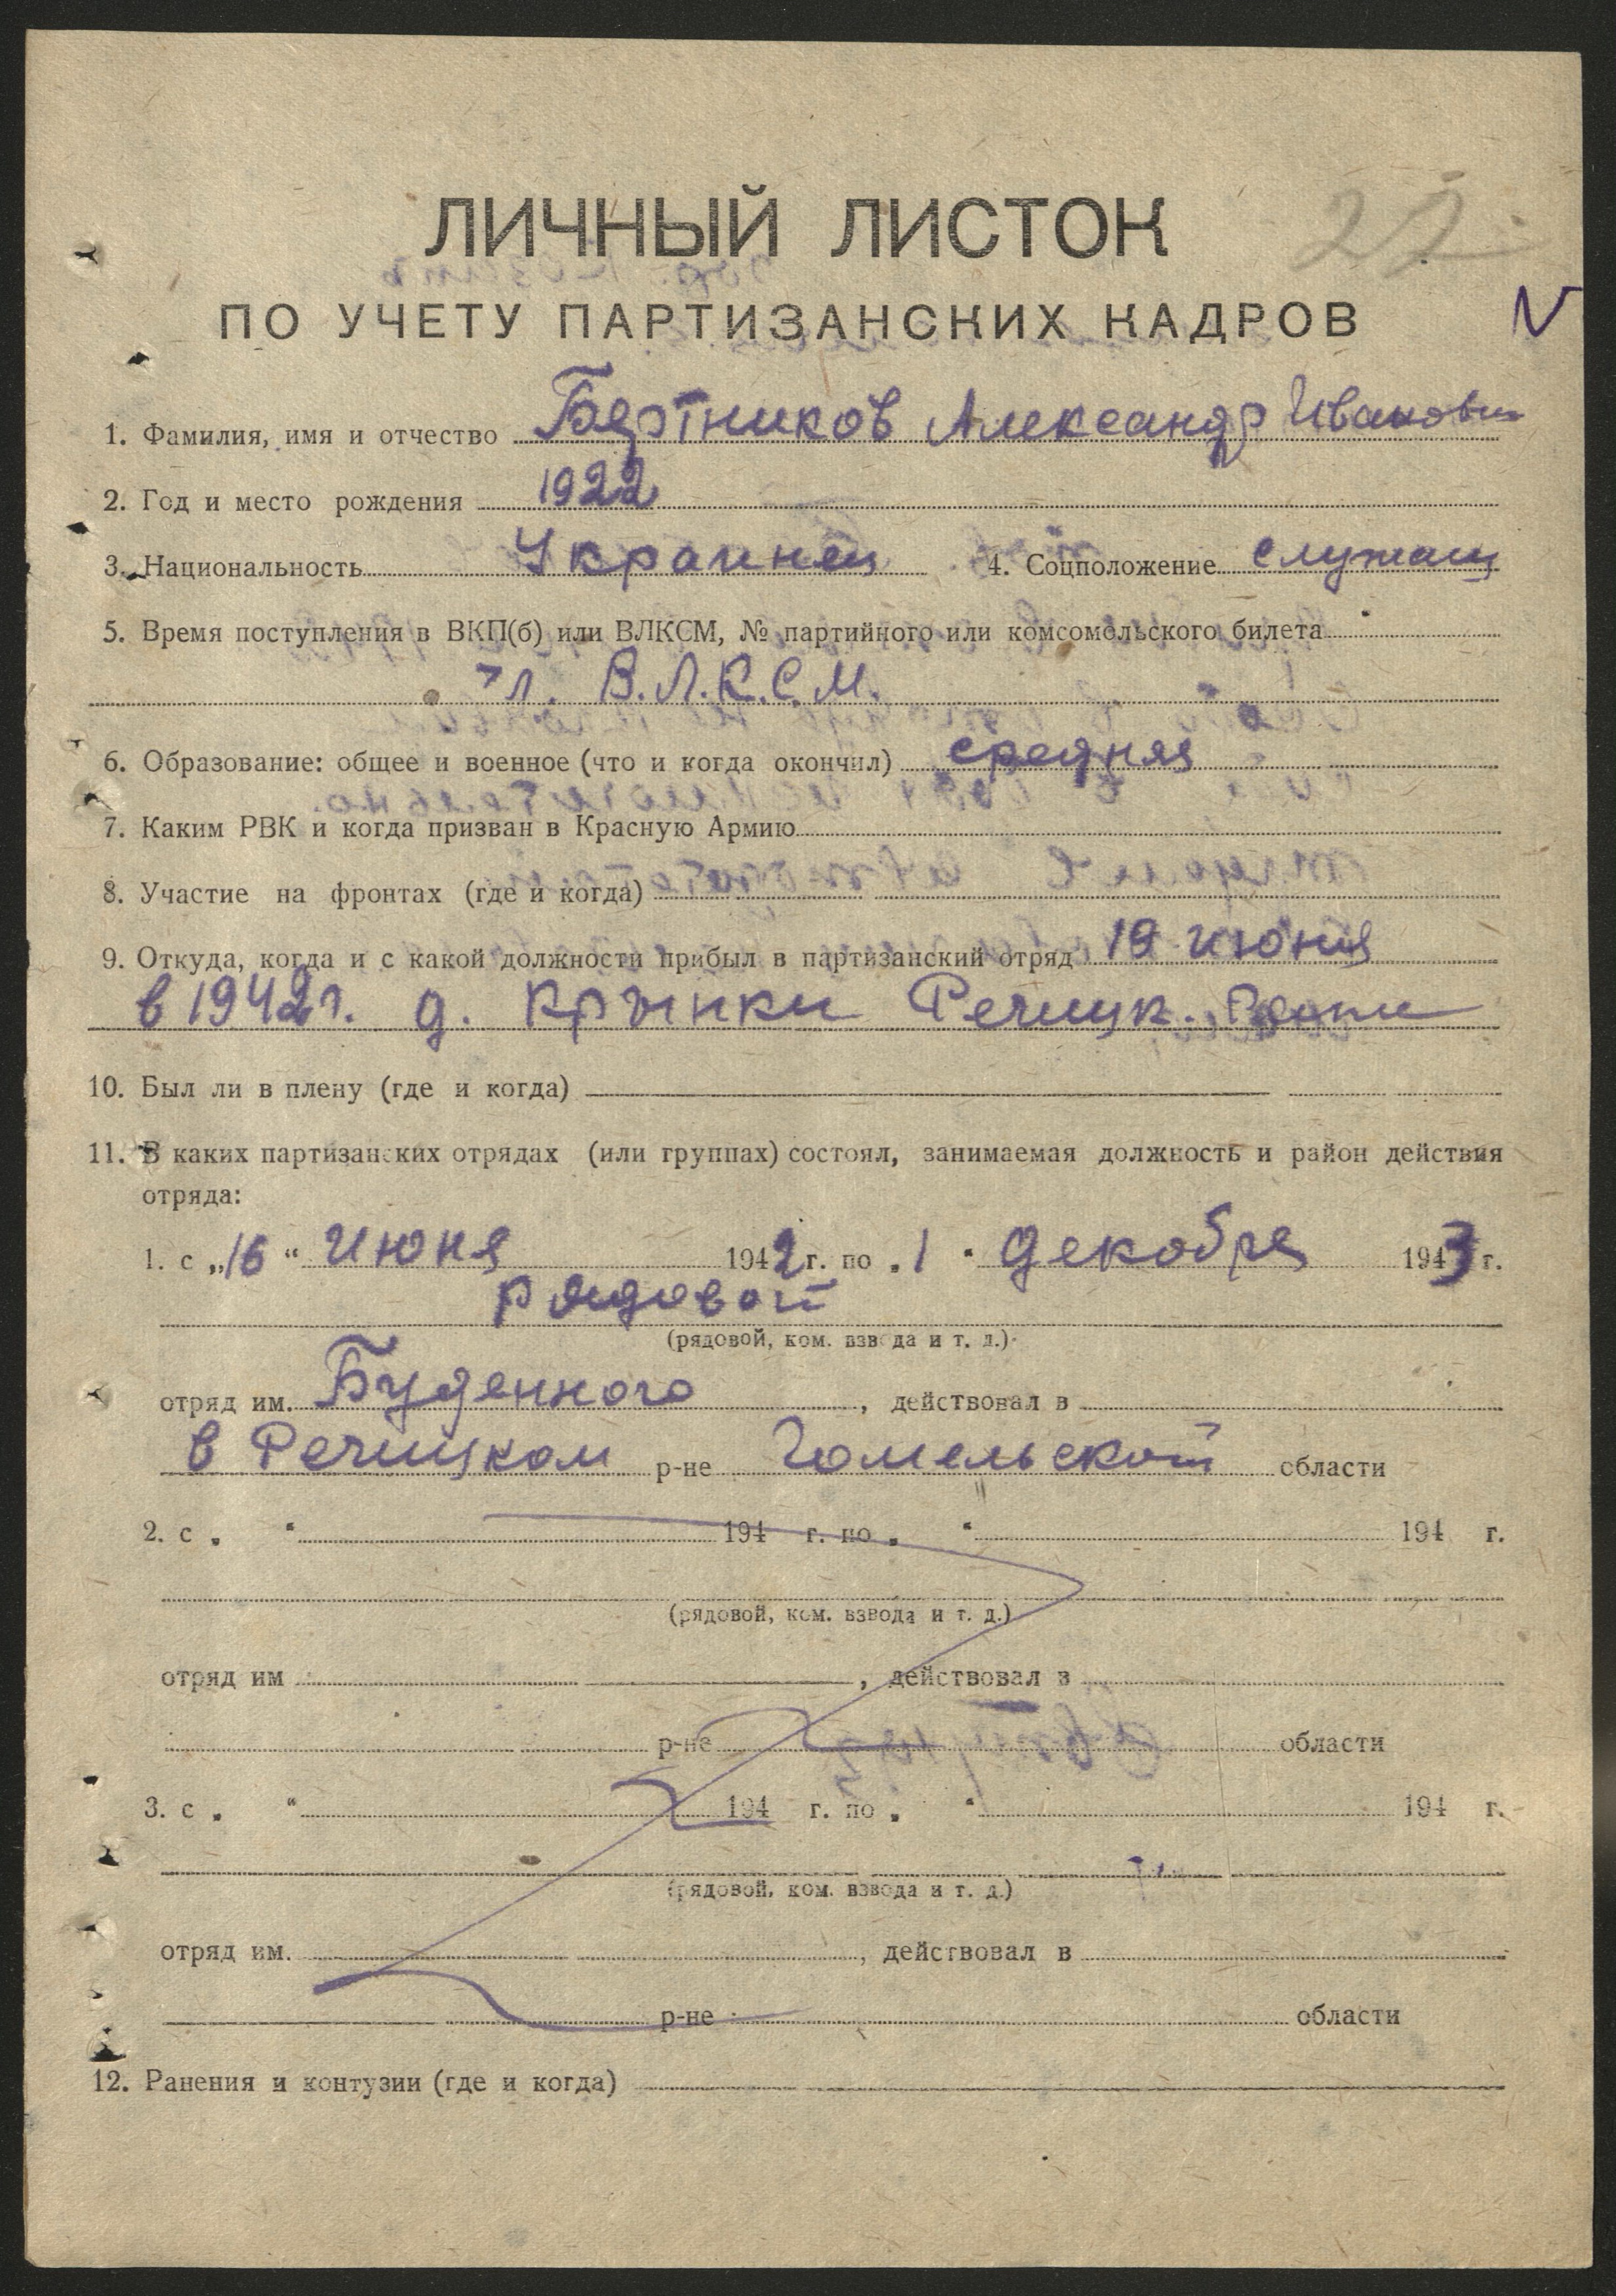 22
ЛИЧНЫЙ ЛИСТОК
ПО УЧЕТУ ПАРТИЗАНСКИХ КАДРОВ
1. Фамилия, имя и отчество Александр Иванович
2. Год и место рождения 1922
3. Национальность Украинец 4. Соцположение служащ
5. Время поступления в ВКП(б) или ВЛКСМ, № партийного или комсомольского билета
чл. В.Л.К.С.М.
6. Образование: общее и военное (что и когда окончил) средняя
7. Каким РВК и когда призван в Красную Армию
8. Участие на фронтах (где и когда)
9. Откуда, когда и с какой должности прибыл в партизанский отряд 19 июня
в 1942 г. д. Крынки Речицк.
10. Был ли в плену (где и когда)
11. В каких партизанских отрядах (или группах) состоял, занимаемая должность и район действия
отряда:
1. с „16“ июня 1942 г. по „1“ декобря 1943 г.
рядовой
(рядовой, ком. взвода и т. д.)
отряд им. Буденного, действовал в
в Речицком р-не Гомельской области
2. с „ “ 194 г. по „ “ 194 г.
(рядовой, ком. взвода и т. д.)
отряд им , действовал в
р-не области
3. с „ “ 194 г. по „ “ 194 г.
(рядовой, ком. взвода и т. д.)
отряд им. , действовал в
р-не области
12. Ранения и контузии (где и когда)